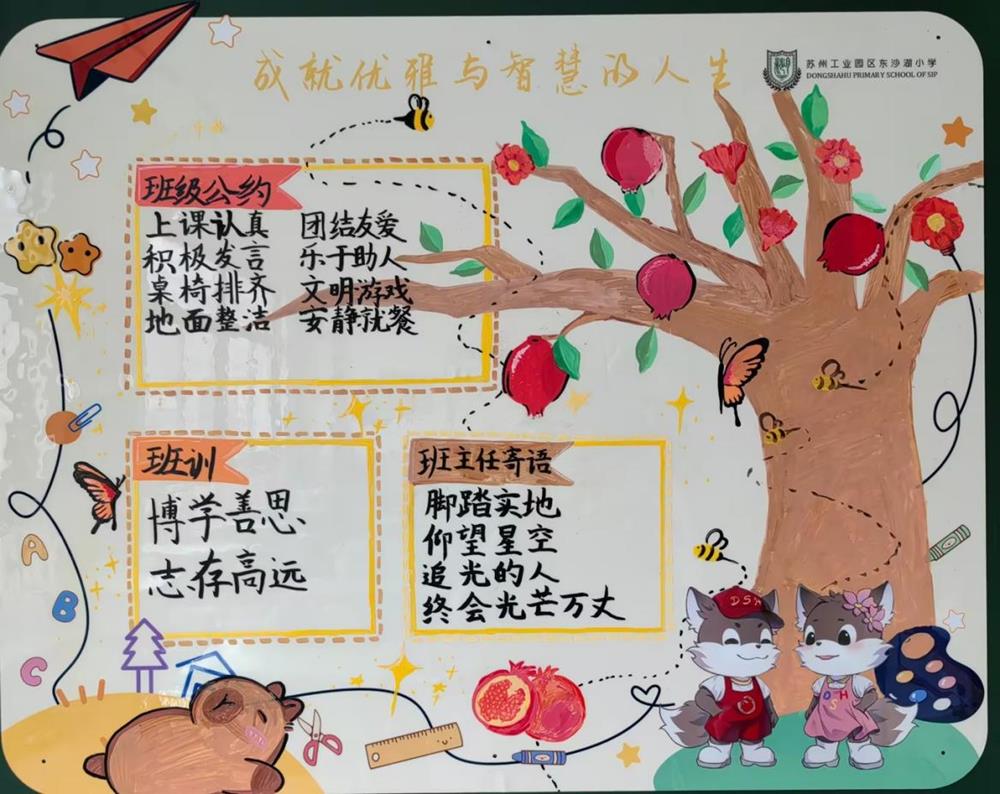 成就优雅与智慧的人生
苏州工业园区东沙湖小学
DONGSHAHU PRIMARY SCHOOL OF SIP
班级公约
上课认真 团结友爱
积极发言 乐于助人
桌椅排齐 文明游戏
地面整洁 安静就餐
班训
博学善思
志存高远
班主任寄语
脚踏实地
仰望星空
追光的人
终会光芒万丈
A
B
C
DSH